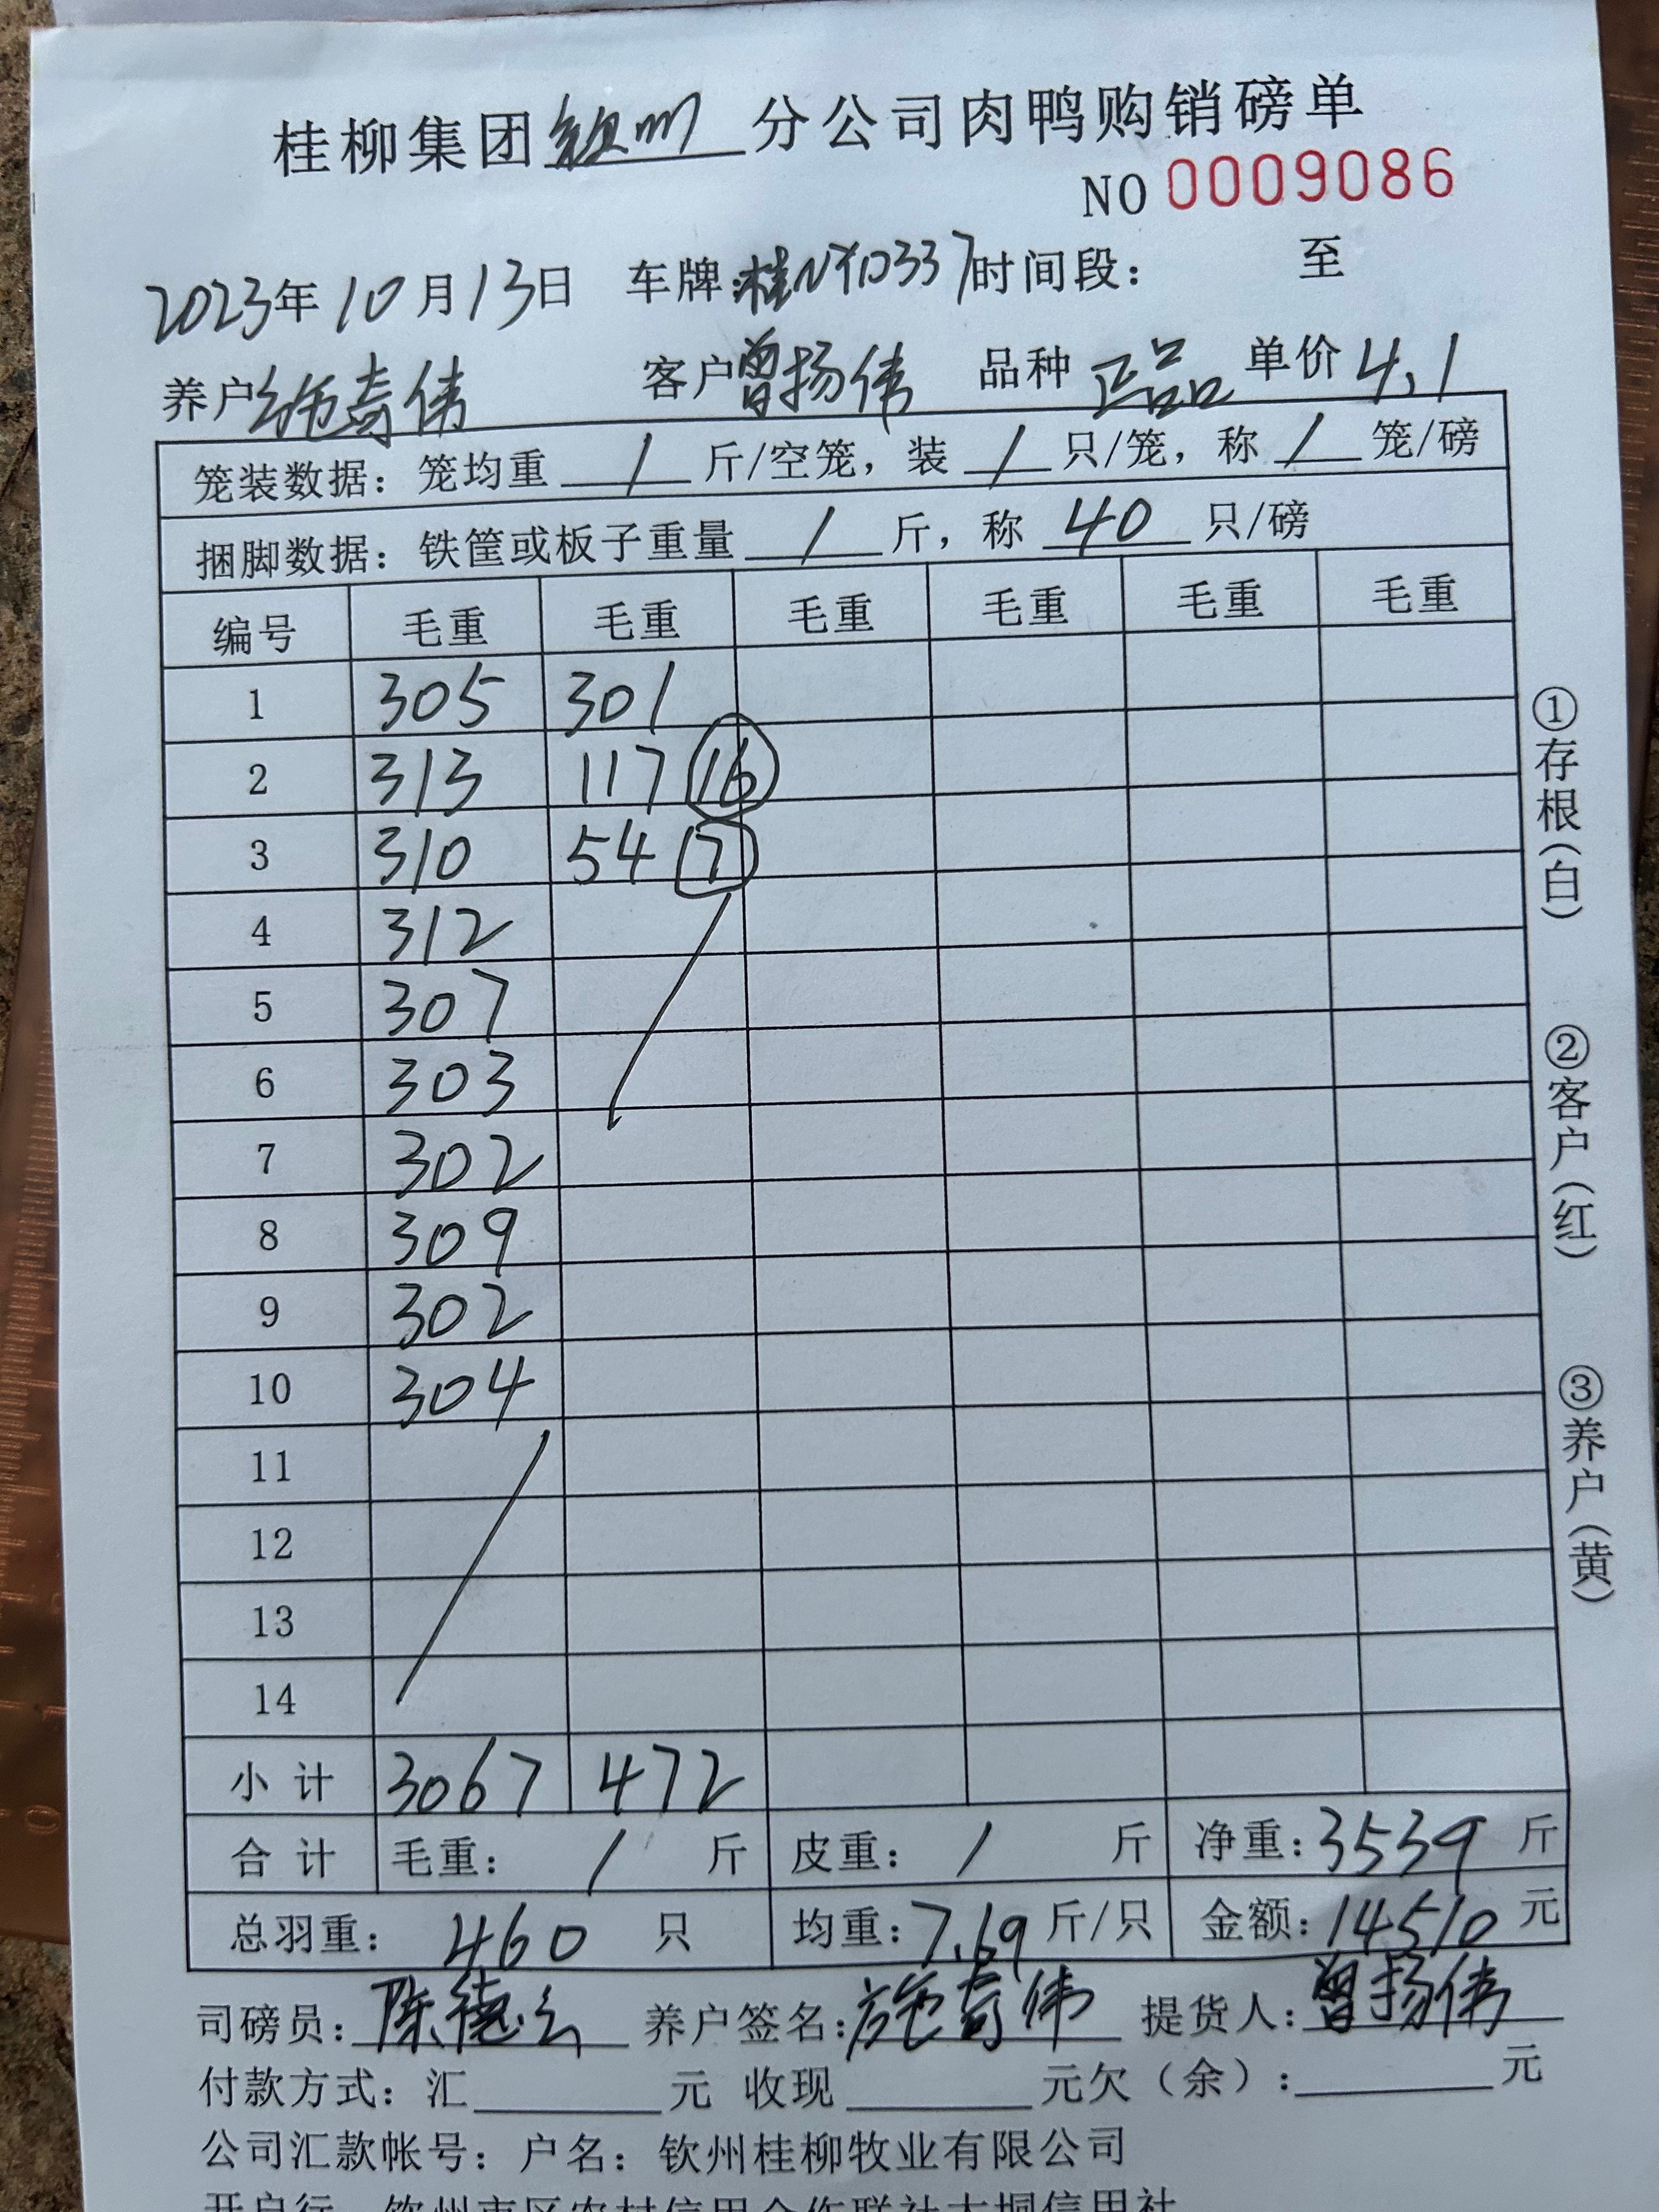 桂柳集团钦州分公司肉鸭购销磅单
NO 0009086
2023年10月13日 车牌:桂NY0337 时间段: 至
养户施奇伟 客户曾扬伟 品种 正品 单价4.1
笼装数据:笼均重 / 斤/空笼,装 / 只/笼,称 / 笼/磅
捆脚数据:铁筐或板子重量 / 斤,称 40 只/磅
编号 毛重 毛重 毛重 毛重 毛重 毛重
1 305 301
2 313 117 16
3 310 54 7
4 312
5 307
6 303
7 302
8 309
9 302
10 304
11
12
13
14
小计 3067 472
合计 毛重: / 斤 皮重: / 斤 净重:3539 斤
总羽重: 460 只 均重:7.69 斤/只 金额:14510 元
司磅员:陈德云 养户签名:施奇伟 提货人:曾扬伟
付款方式:汇 元 收现 元欠(余): 元
公司汇款帐号:户名:钦州桂柳牧业有限公司
开户行 钦州市区农村信用合作联社大垌信用社
①存根(白)
②客户(红)
③养户(黄)